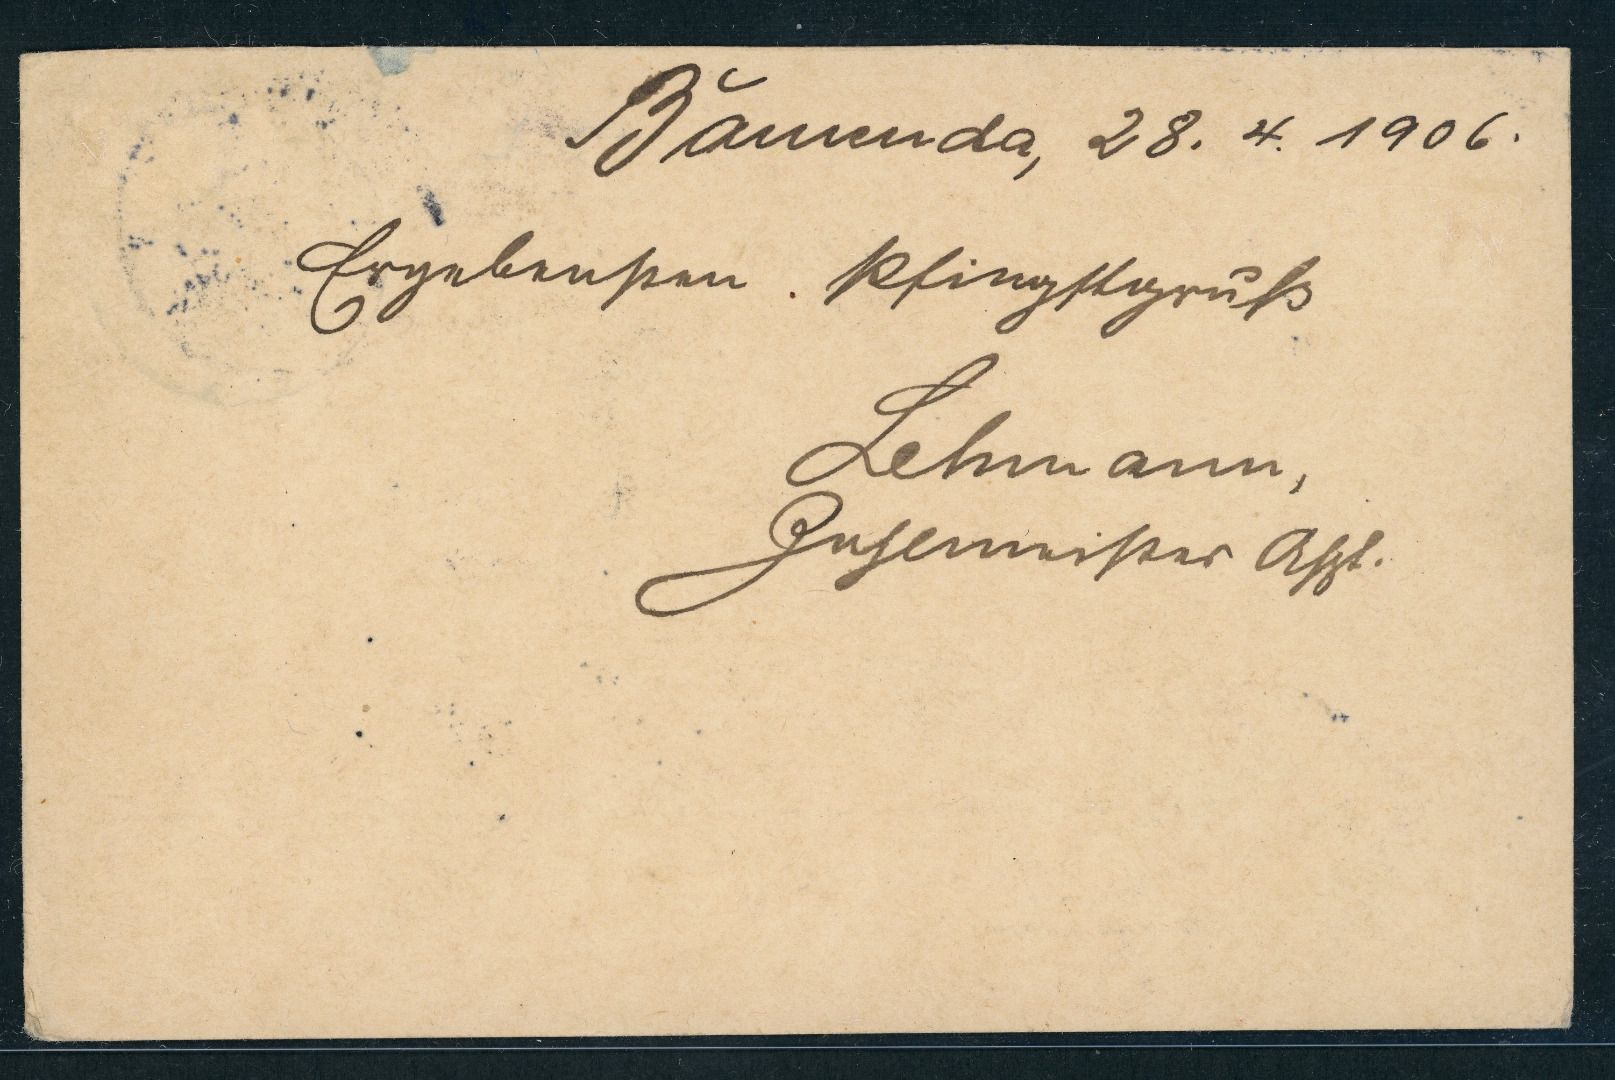 Bamenda, 28. 4. 1906.
Ergebensten Pfingstgruß
Lehmann,
Zahlmeister Aspt.